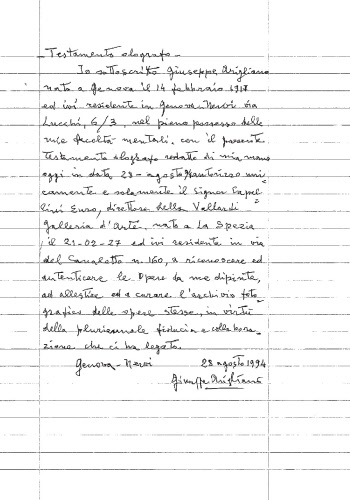 Testamento olografo -
Io sottoscritto Giuseppe Arigliano
nato a Genova il 14 febbraio 1917
ed ivi residente in Genova-Nervi via
6/3, nel pieno possesso delle
mie facoltà mentali, con il presente
testamento olografo redatto di mia mano
oggi in data 28-agosto autorizzo uni
camente e solamente il signor Capel
lini Enzo, direttore della Vallardi
Galleria d'Arte, nato a La Spezia
il 21-02-27 ed ivi residente in via
del Canaletto n. 160, a riconoscere ed
autenticare le Opere da me dipinte,
ad allestire ed a curare l'archivio foto
grafico delle opere stesse, in virtù
della pluriennale fiducia e collabora-
zione che ci ha legato.
Genova-Nervi 28 agosto 1994
Giuseppe Arigliano